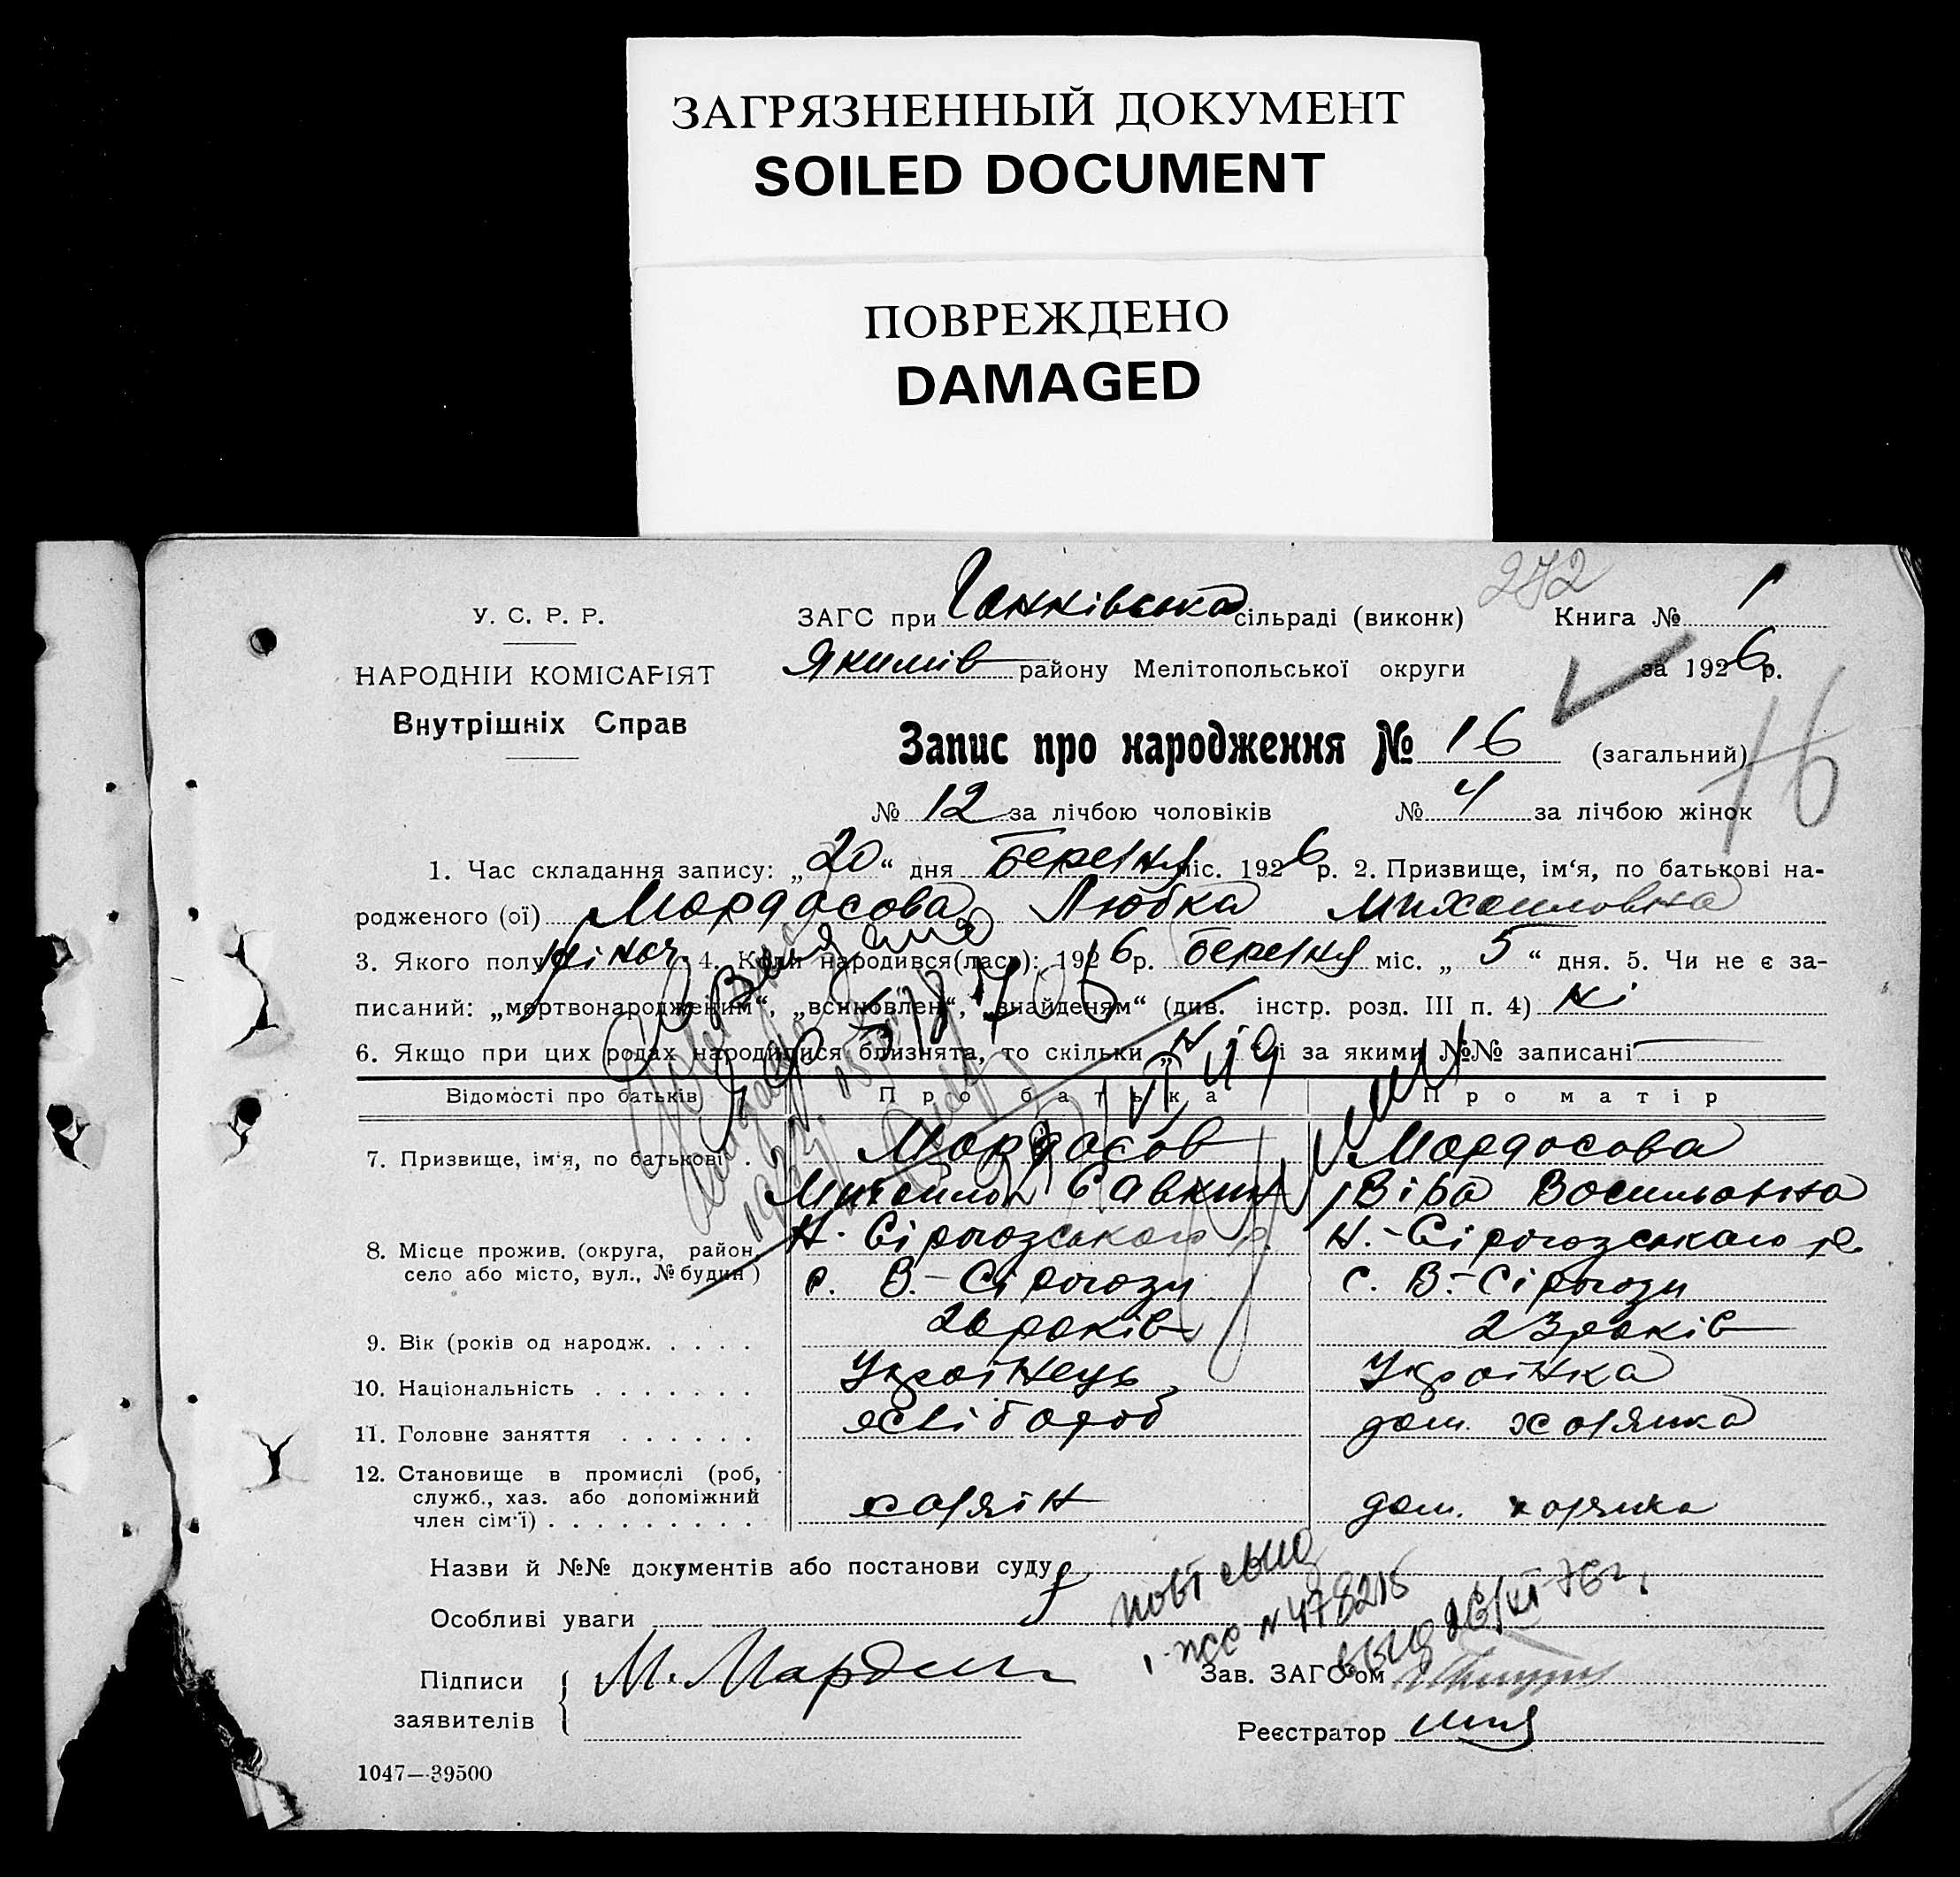 ЗАГРЯЗНЕННЫЙ ДОКУМЕНТ
SOILED DOCUMENT
ПОВРЕЖДЕНО
DAMAGED
272
У. С. Р. Р.
НАРОДНІЙ КОМІСАРІЯТ
Внутрішніх Справ
ЗАГС при Ганнівська сільраді (виконк) Книга № 1
Якимів району Мелітопольської округи за 1926 р.
Запис про народження № 16 (загальний)
16
№ 12 за лічбою чоловіків № 4 за лічбою жінок
1. Час складання запису: „20“ дня березня міс. 1926 р. 2. Призвище, ім‘я, по батькові на-
родженого (ої) Мордасова Любка Михаиловна
3. Якого полу жіноч. 4. Коли народився(лась): 1926 р. березня міс. „5“ дня. 5. Чи не є за-
писаний: „мертвонародженим“, „всиновлен“, „знайденям“ (див. інстр. розд. III п. 4) ні
6. Якщо при цих родах народилися близнята, то скільки „ н і за якими №№ записані
Відомості про батьків Про батька Про матір
7. Призвище, ім‘я, по батькові . Мордасов Мордасова
Михаилов Савкин Віра Восильовна
8. Місце прожив. (округа, район, село або місто, вул., № будин) Н. Сірогозського р. Н.-Сірогозського р.
с. В.-Сірогози с. В.-Сірогози
9. Вік (років од народж. . . . . 26 років 23 років
10. Національність . . . . . . . Українець Українка
11. Головне заняття . . . . . . хлібороб дом. хозяйка
12. Становище в промислі (роб, служб., хаз. або допоміжний член сім‘ї) . . . . . . . . . хозяін дом. хозяйка
Назви й №№ документів або постанови суду
Особливі уваги
повт выд
N 478216
выд 26/XI 76 г.
Підписи
заявителів
М. Мардас
Зав. ЗАГС‘ом
Реєстратор
1047—39500